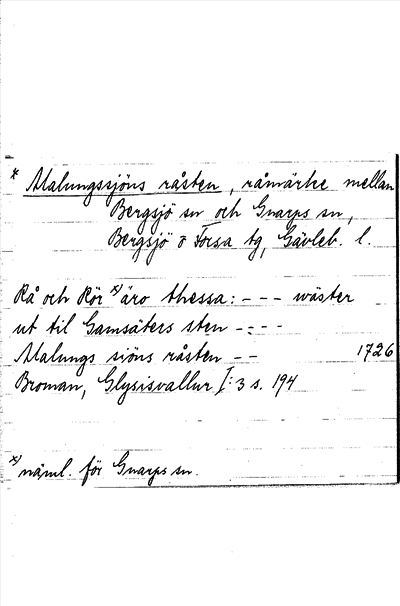 * Malungssjöns råsten, råmärke mellan
Bergsjö sn och Gnarps sn,
Bergsjö o Forsa tg, Gävleb. l.
Rå och Rör x) äro thessa: - - - wäster
ut til Gamsäters sten - : - -
Malungs siöns råsten - - 1726
Broman, Glysisvallur I:3 s. 194
x) näml. för Gnarps sn.